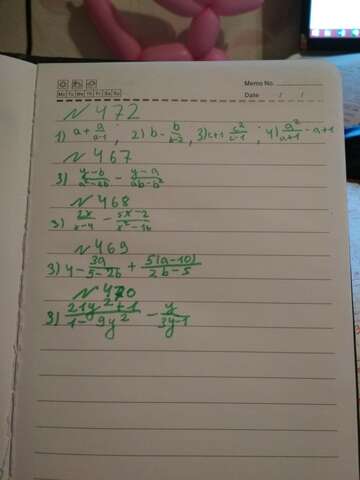 Memo No.
Mo Tu We Th Fr Sa Su
Date / /
№ 472
1) a + a/a-1 ; 2) b - b/b-2 , 3) c+1 c²/c-1 ; 4) a²/a+1 - a+1
№ 467
3) y-b/a²-ab - y-a/ab-b²
№ 468
3) 2x/x-4 - 5x-2/x²-16
№ 469
3) 4 - 3a/5-2b + 5(a-10)/2b-5
№ 470
3) 21y²+1/1-9y² - y/3y-1